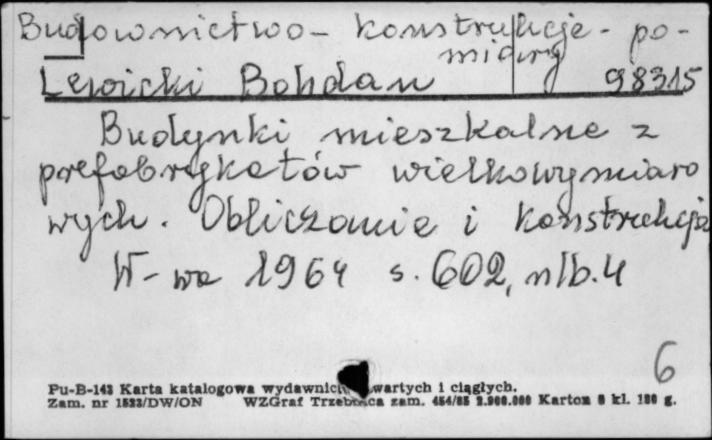 Budownictwo - konstrukcje - po-
miary
Lewicki Bohdan 98315
Budynki mieszkalne z
prefabrykatów wielkowymiaro
wych. Obliczanie i konstrukcja
W-wa 1964 s. 602, nlb. 4
6
Pu-B-143 Karta katalogowa wydawnictw zwartych i ciągłych.
Zam. nr 1523/DW/ON WZGraf Trzebnica zam. 454/85 2.900.000 Karton 6 kl. 180 g.